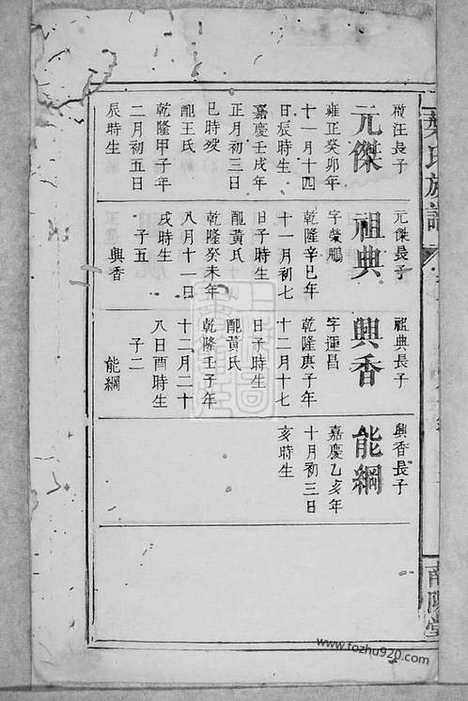 氏族譜
南陽堂
汪長子
元傑
雍正癸卯年
十一月十四
日辰時生
嘉慶壬戌年
正月初三日
巳時歿
配王氏
乾隆甲子年
二月初五日
辰時生
元傑長子
祖典
字榮鵬
乾隆辛巳年
十一月初七
日子時生
配黃氏
乾隆癸未年
八月十一日
戌時生
子五
興香
祖典長子
興香
字運昌
乾隆庚子年
十二月十七
日子時生
配黃氏
乾隆壬子年
十二月二十
八日酉時生
子二
能綱
興香長子
能綱
嘉慶乙亥年
十月初三日
亥時生
www.fozhu920.com